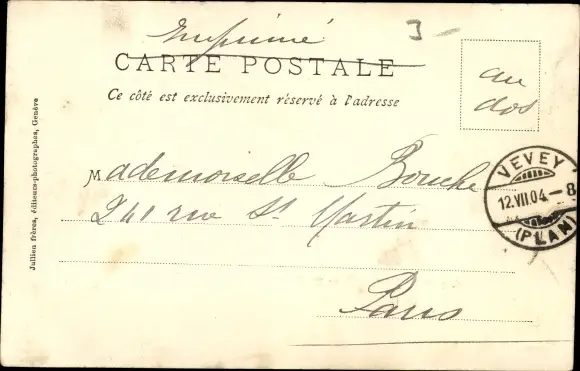 Imprimé
3
CARTE POSTALE
Ce côté est exclusivement réservé à l'adresse
au
dos
Mademoiselle Bouche
241 rue St Martin
Paris
VEVEY
12.VII.04.–8
(PLAN)
Jullien frères, éditeurs-photographes, Genève